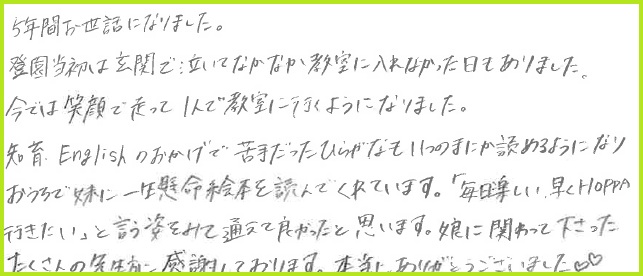 5年間お世話になりました。
登園当初は玄関で泣いてなかなか教室に入れなかった日もありました。
今では笑顔で走って1人で教室に行くようになりました。
知育、Englishのおかげで苦手だったひらがなもいつのまにか読めるようになり
おうちで妹に一生懸命絵本を読んでくれています。「毎日楽しい、早くHOPPA
行きたい」と言う姿をみて通えて良かったと思います。娘に関わって下さった
たくさんの先生方に感謝しております。本当にありがとうございました♡♡